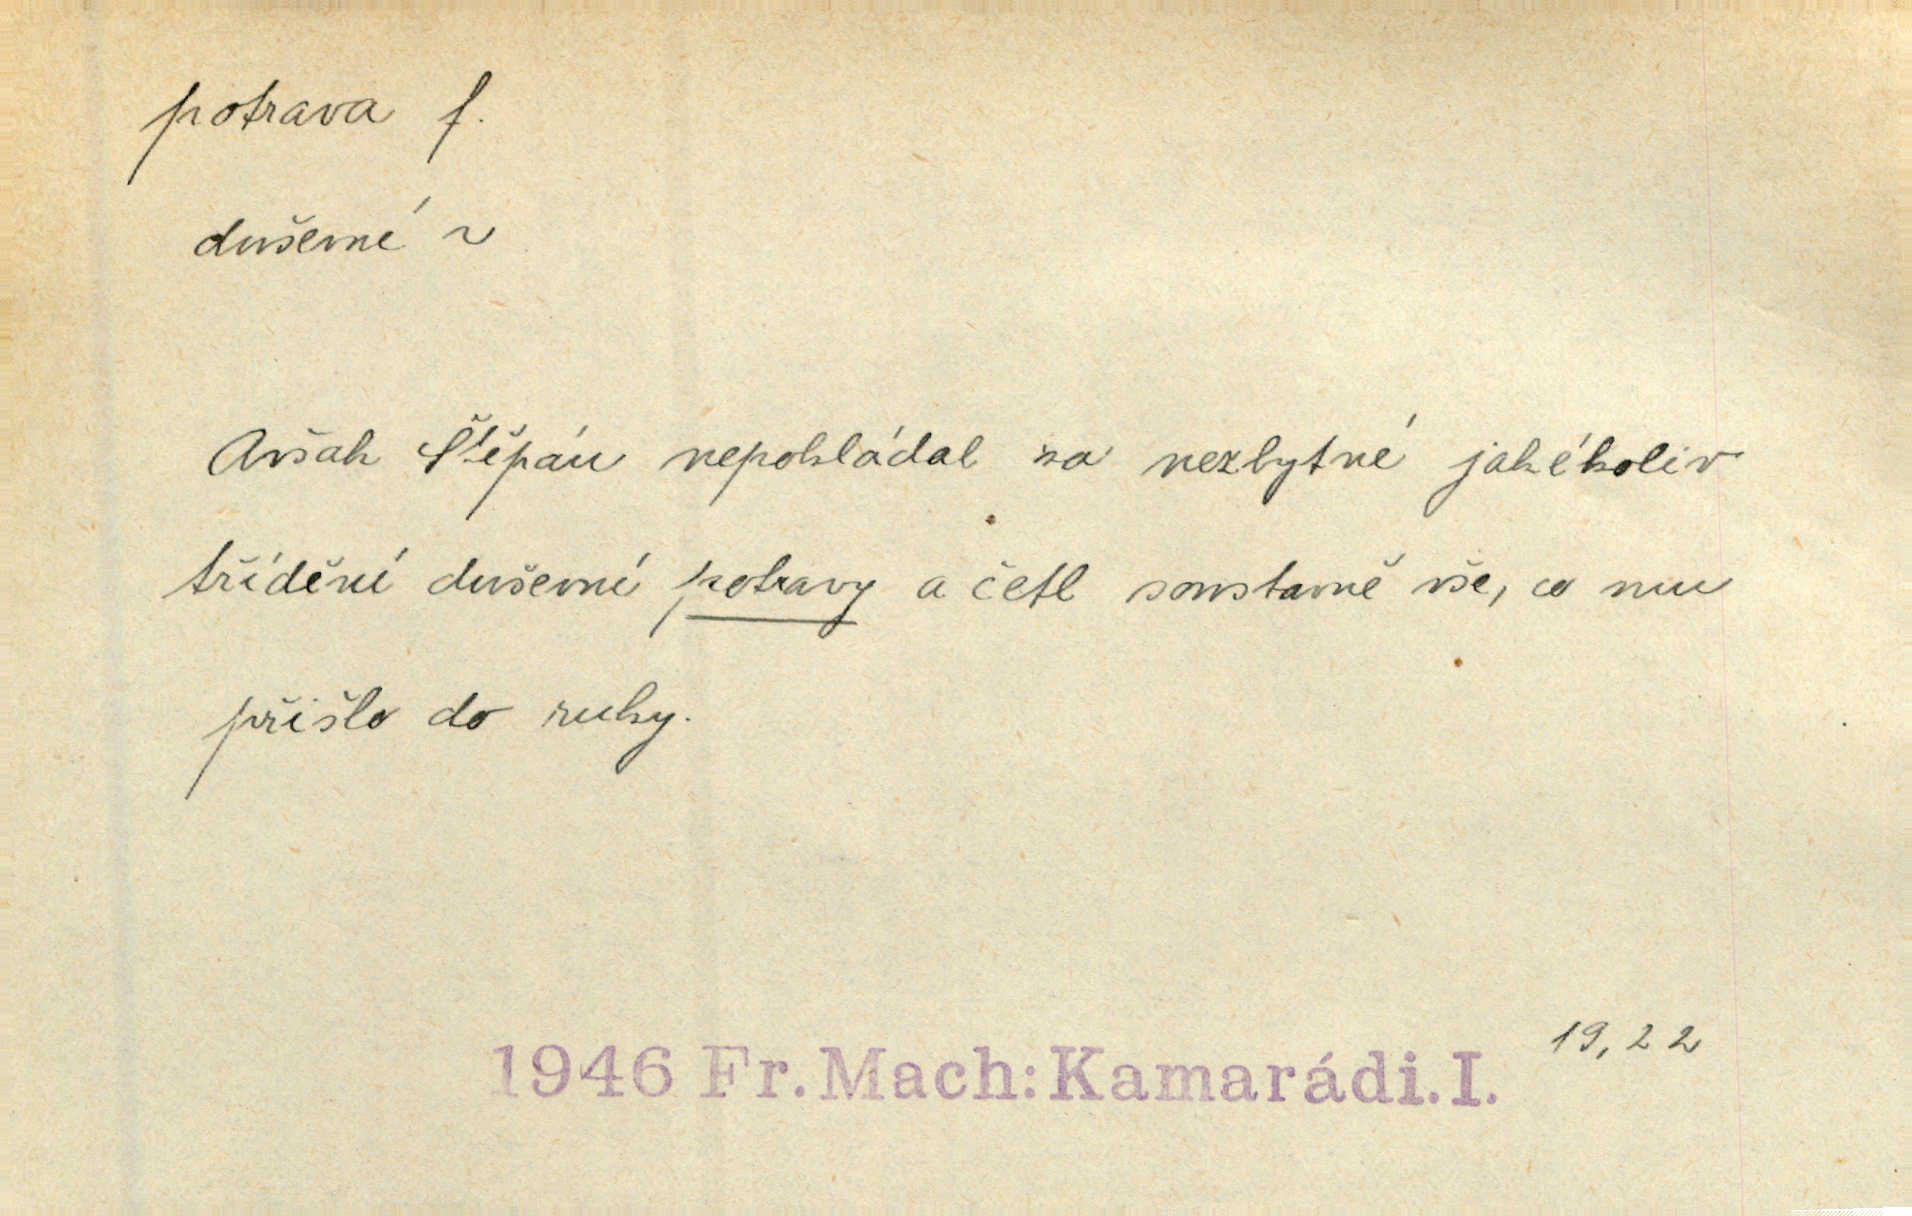 potrava f.
duševní ~
Avšak Štěpán nepokládal za nezbytné jakékoliv
třídění duševní potravy a četl soustavně vše, co mu
přišlo do ruky.
19,22
1946 Fr. Mach: Kamarádi. I.